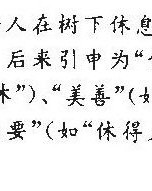 人在树下休息
后来引申为“
休”)、“美善”(如
要”(如“休得